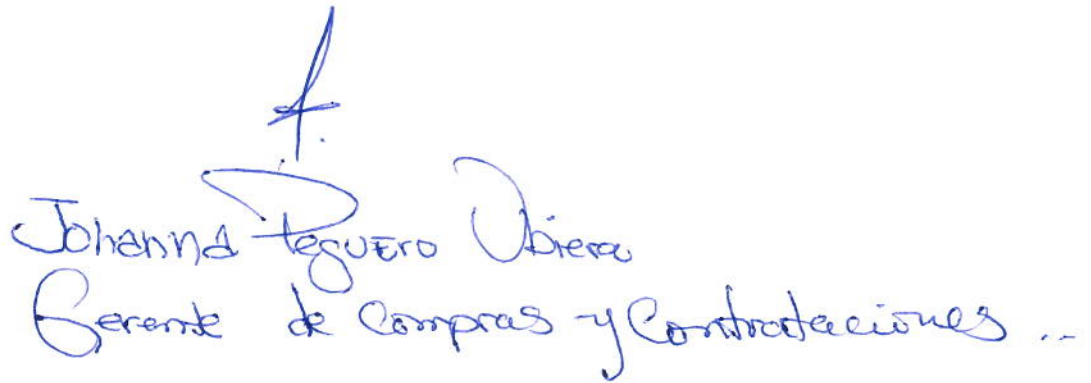 Johanna Peguero Ubiera
Gerente de Compras y Contrataciones ..